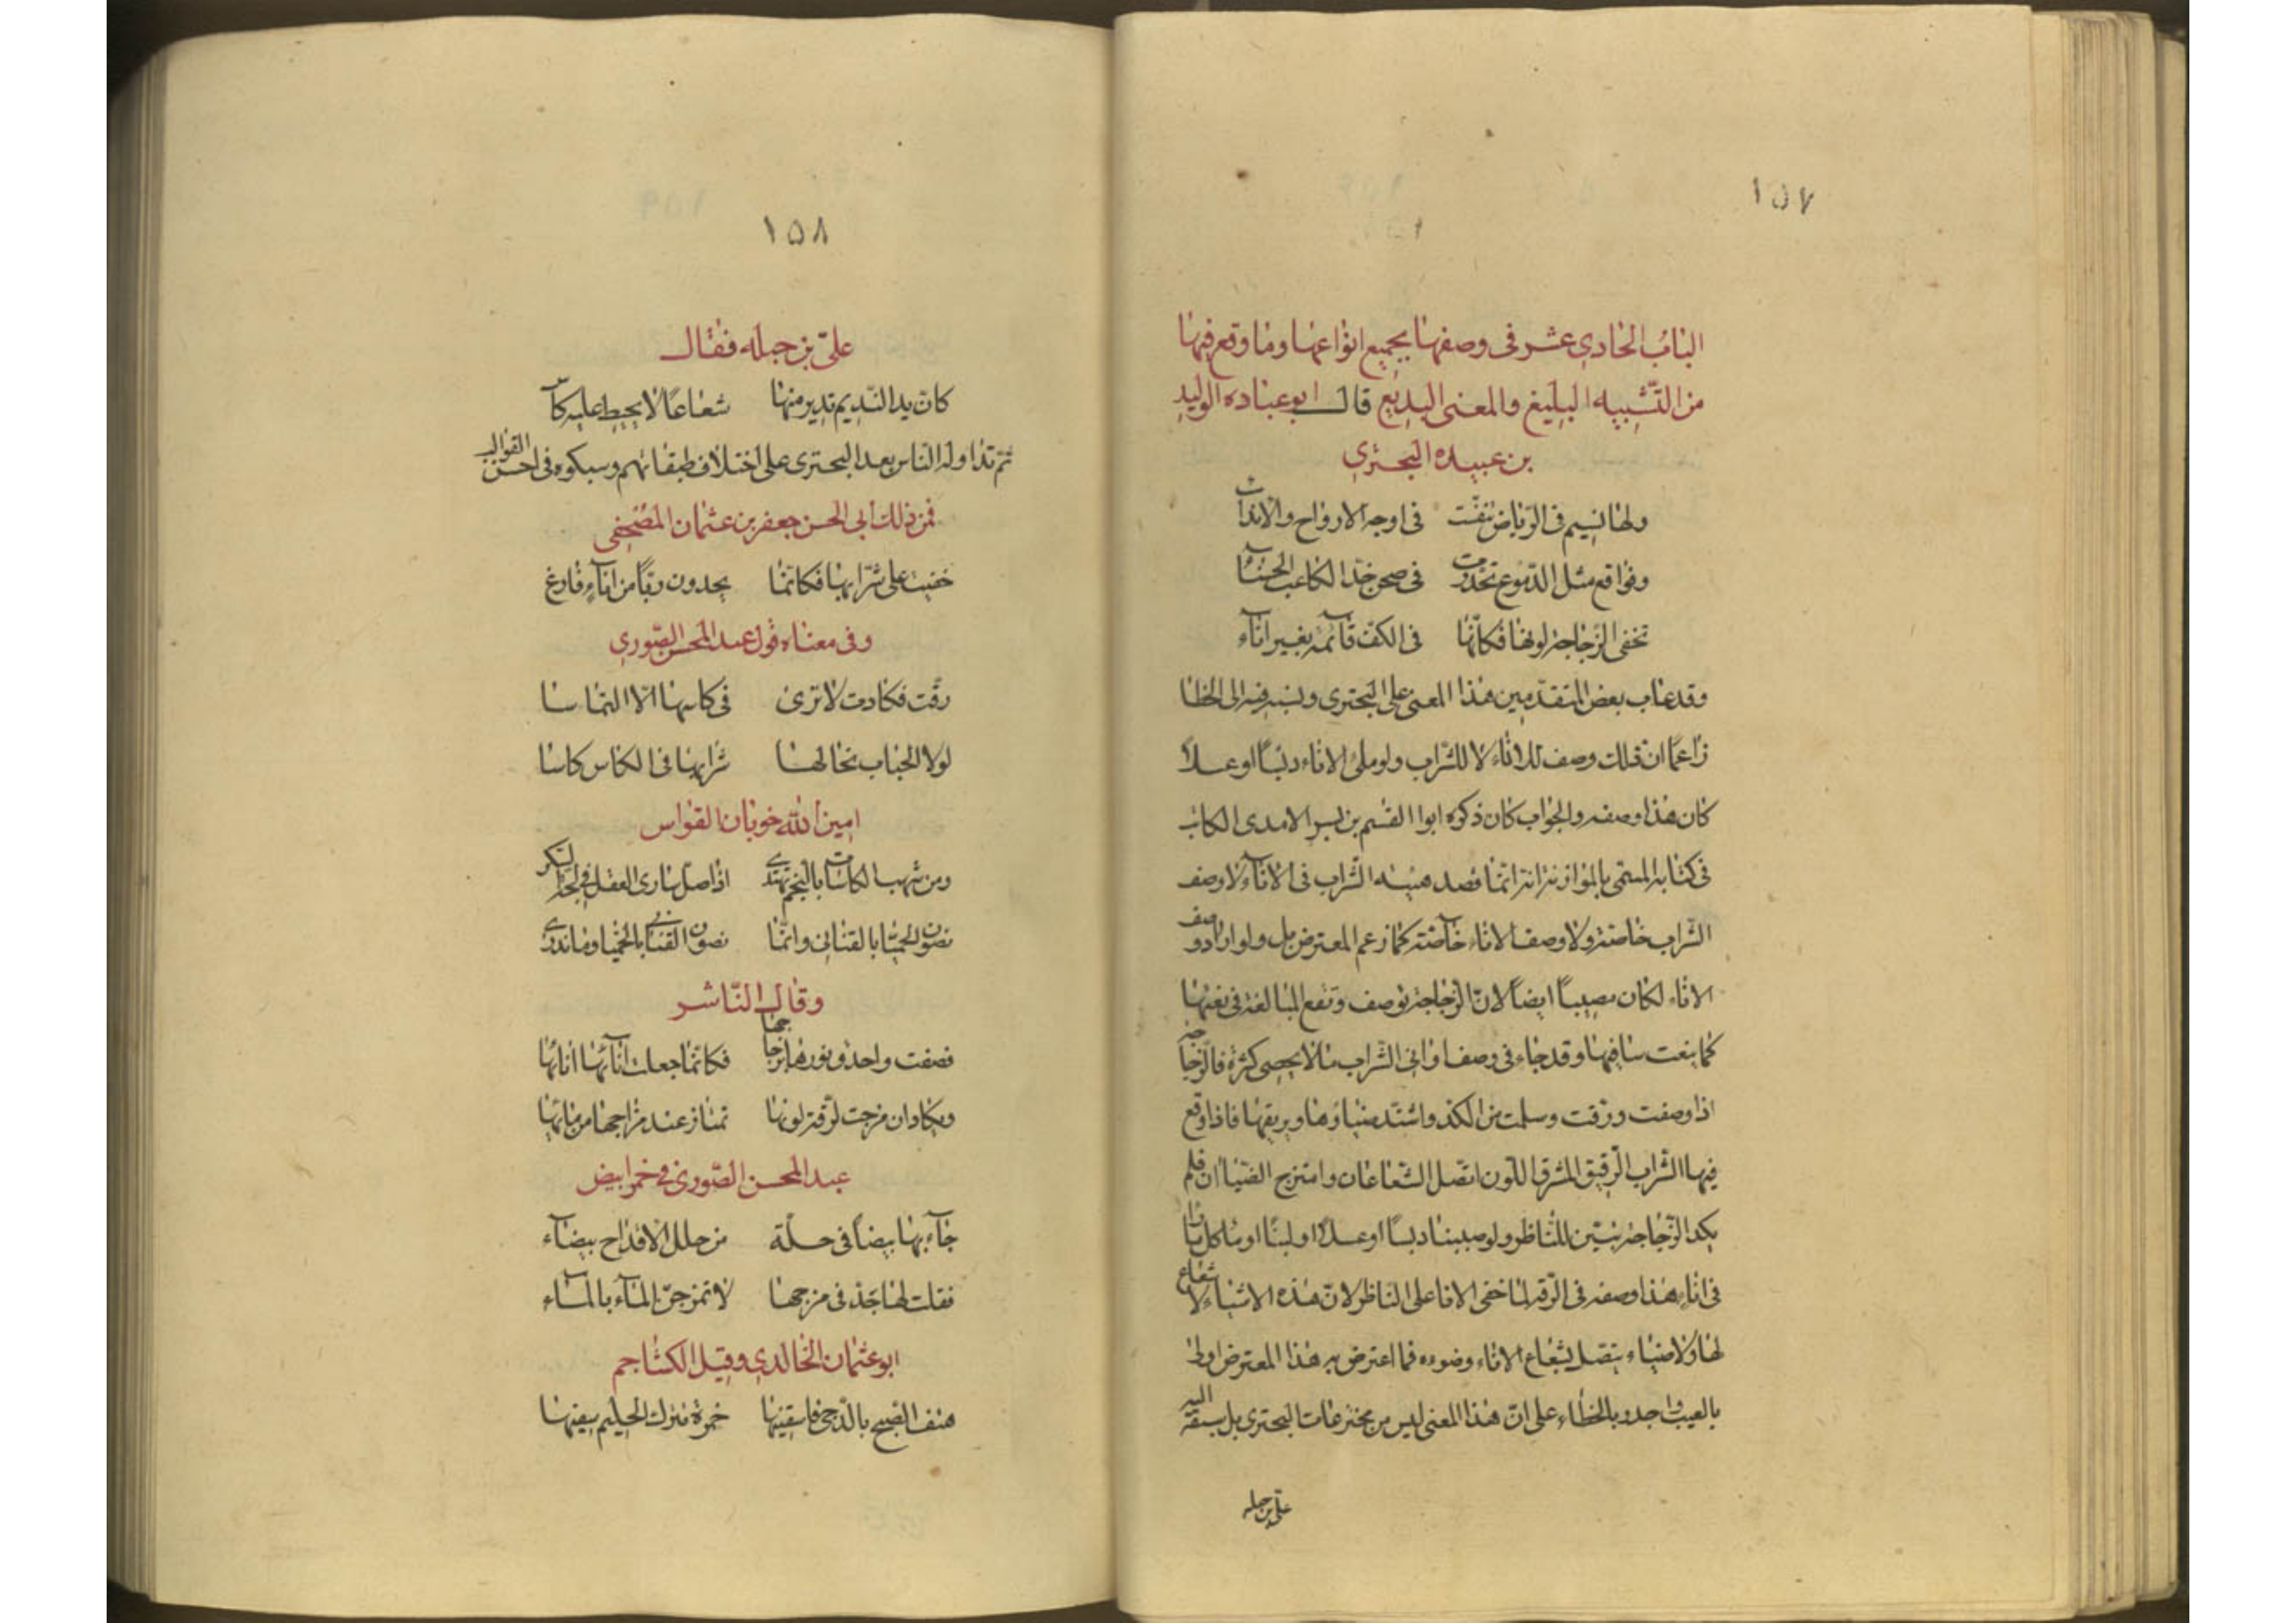 ١٥٧
الباب الحادي عشر في وصفها بجميع انواعها وما وقع فيها
من التشبيه البليغ والمعنى البديع قال ابو عباده الوليد
بن عبيده البحتري
ولها نسيم في الرياض تنفّست في اوجه الارواح والانداء
وفواقع مثل الدموع تحدّرت في صحن خدّ الكاعب الحسناء
تخفى الزجاجة لونها فكانّها في الكفّ قائمة بغير اناء
وقد عاب بعض المتقدّمين هذا المعنى على البحترى ونسبه فيه الى الخطا
زاعما انّ ذلك وصف للاناء لا للشراب ولو ملئ الاناء دبسًا او عسلًا
كان هذا وصفه والجواب كان ذكره ابوا القسم بن بسر الامدى الكاتب
فى كتابه المسمّى بالموازنة انّه انّما قصد هيئة الشراب فى الاناء ولا وصف
الشراب خاصّته ولا وصف الاناء خاصّته كما زعم المعترض بل ولو اراد وصف
الاناء لكان مصيبًا ايضًا لانّ الزجاجة توصف وتقع المبالغة فى نعتها
كما ينعت ساقيها وقد جاء فى وصف اوانى الشراب ما لا يحصى كثرة فالزجاجه
اذا وصفت ورقّت وسلمت من الكدر واشتدّ ضياؤها وبريقها فاذا وقع
فيها الشراب الرقيق المشرق اللون اتصل الشعاعان وامتزج الضياان فلم
يكد الزجاجة تبيّن للناظر ولو صببنا دبسًا او عسلًا او لبنًا او ما كل ماء
فى اناء هذا وصفه فى الرقّة لما خفى الانا على الناظر لانّ هذه الاشياء لا شعاع
لها ولا ضياء يتصل بشعاع الاناء وضوءه فما اعترض به هذا المعترض اولى
بالعيب واجدر بالخطاء على انّ هذا المعنى ليس من مخترعات البحترى بل سبقه اليه
علىّ بن جبله
١٥٨
علىّ بن جبله فقال
كانّ يد النديم تدير منها شعاعًا لا يحيط عليه كاس
ثمّ تداوله الناس بعد البحترى على اختلاف طبقاتهم وسبكوه فى احسن القوالب
فمن ذلك ابى الحسن جعفر بن عثمان المصحفى
خفيت على شرّابها فكانّما يجدون ريًّا من اناء فارغ
وفى معناه قول عبد المحسن الصورى
رقّت فكادت لا ترى فى كاسها الّا التماسا
لولا الحباب نخالها شرابها فى الكاس كاسا
امين الله خوبان القواس
ومن شهب الكاسات بالنجم نهتدى اذا ضلّ سارى العقل فى لجّة السكر
نصون الحميّا بالقنانى وانّما نصون القنانى بالحميّا وما ندرى
وقال الناشر
فصفت واحذق نورها بزجاجها فكانّما جعلت انائها انائها
ويكاد ان مزجت لرقّة لونها تمتاز عند مزاجها من مائها
عبد المحسن الصورى فى خمر ابيض
جاء بها بيضًا فى حلّة من حلل الاقداح بيضاء
فقلت لها جدّ فى مزجها لا تمزجنّ الماء بالماء
ابو عثمان الخالدى وقيل الكشاجم
هتف الصبح بالدجى فاسقينها خمرة تترك الحليم سفيها